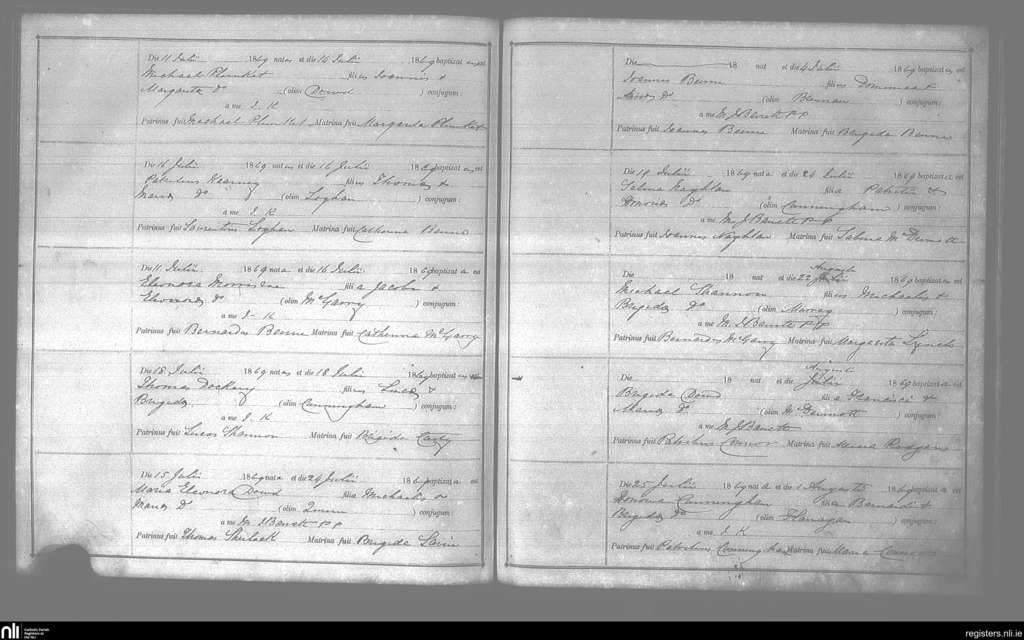 Die 11 Julii 1869 natus et die 16 Julii 1869 baptizatus est
Michael Plunket filius Joannis &
Margarita Do (olim Dowd) conjugum:
a me J. K
Patrinus fuit Michael Plunket Matrina fuit Margarita Plunket
Die 16 Julii 1869 natus et die 16 Julii 1869 baptizatus est
Patritius Kearney filius Thomas &
Maria Do (olim Loghan) conjugum:
a me J. K
Patrinus fuit Laurentius Loghan Matrina fuit Catherina
Die 11 Julii 1869 nata et die 16 Julii 1869 baptizata est
Eleonora filia Jacobi &
Eleonora Do (olim McGarry) conjugum:
a me J. K
Patrinus fuit Bernardus Beirne Matrina fuit Catherina McGarry
Die 18 Julii 1869 natus et die 18 Julii 1869 baptizatus est
Thomas Dockery filius Lucas &
Brigida (olim Cunningham) conjugum:
a me J. K
Patrinus fuit Lucas Shannon Matrina fuit Brigida
Die 15 Julii 1869 nata et die 24 Julii 1869 baptizata est
Maria Eleonora Dowd filia Michaelis &
Maria Do (olim Quinn) conjugum:
a me P P
Patrinus fuit Thomas Matrina fuit Brigida
Die 18 nat et die 4 Julii 1869 baptizatus est
Joannes Beirne filius
Do (olim Brennan) conjugum:
a me P P
Patrinus fuit Joannes Beirne Matrina fuit Brigida Beirne
Die 19 Julii 1869 nata et die 24 Julii 1869 baptizata est
Sabina Naghlan filia Patritii &
Honoria Do (olim Cunningham) conjugum:
a me P P
Patrinus fuit Joannes Naghlan Matrina fuit Sabina McDermott
Augusti
Die 18 nat et die 22 Julii 1869 baptizatus est
Michael Shannon filius Michaelis &
Brigida Do (olim) conjugum:
a me P P
Patrinus fuit Bernardus McGarry Matrina fuit Margarita Lynch
Augusti
Die 18 nat et die Julii 1869 baptizata est
Brigida Dowd filia Francisci &
Maria Do (olim McDermott) conjugum:
a me
Patrinus fuit Patritius Connor Matrina fuit
Die 25 Julii 1869 nata et die 1 Augusti 1869 baptizata est
Honoria Cunningham filia Bernardi &
Brigida Do (olim Flanagan) conjugum:
a me J. K
Patrinus fuit Patritius Cunningham Matrina fuit Maria
nli
Catholic Parish
Registers at
the NLI
registers.nli.ie